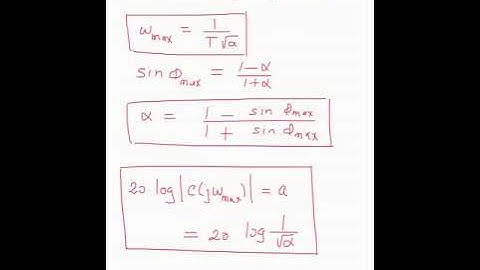 ω_max = 1/(T√a)
sin Φ_max = (1-α)/(1+α)
α = (1 - sin Φ_max)/(1 + sin Φ_max)
20 log |C(jω_max)| = a
= 20 log 1/√α